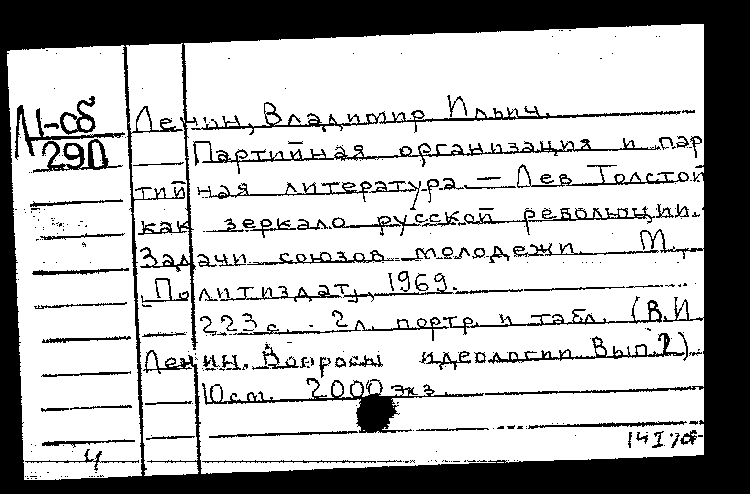 Л1-сб
290
Ленин, Владимир Ильич.
Партийная организация и пар
тийная литература. — Лев Толстой
как зеркало русской революции.
Задачи союзов молодежи. М.,
„Политиздат", 1969.
223 с. 2л. портр. и табл. (В.И
Ленин. Вопросы идеологии Вып. 2)
10см. 2000 экз.
4